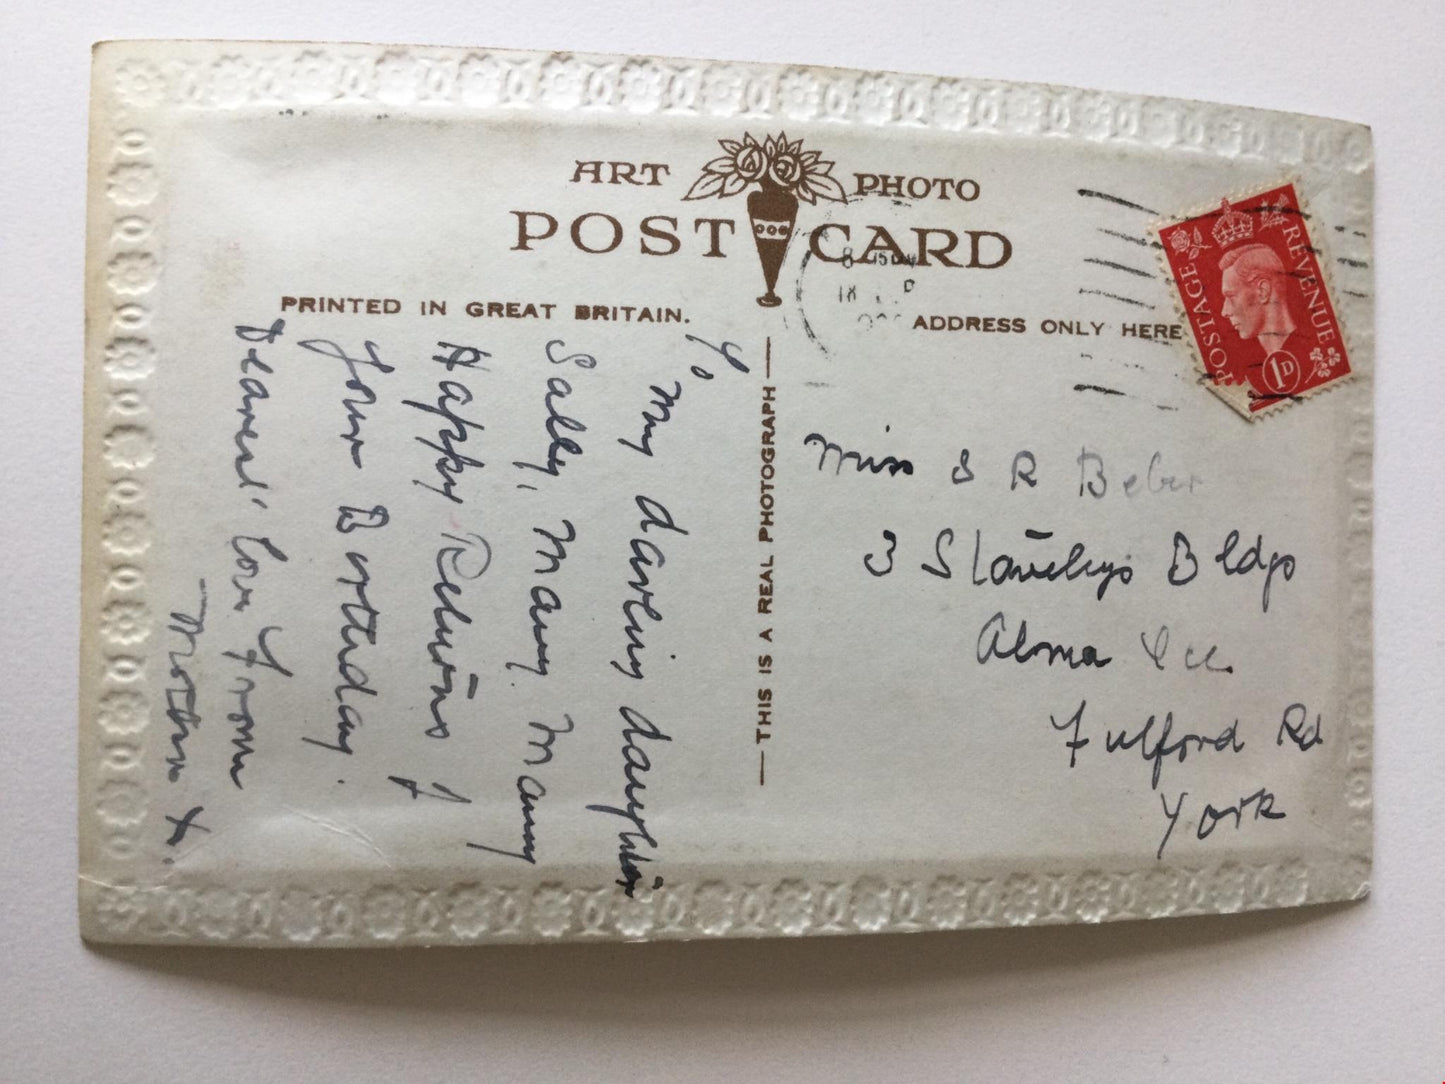 ART PHOTO
POST CARD
PRINTED IN GREAT BRITAIN.
ADDRESS ONLY HERE
THIS IS A REAL PHOTOGRAPH
POSTAGE REVENUE
1D
8 15
18
To
My darling daughter
Sally, Many Many
Happy Returns of
Your Birthday.
Dearest love from
Mother x.
Miss S R Beber
3 Staveleys Bldgs
Alma
Fulford Rd
York